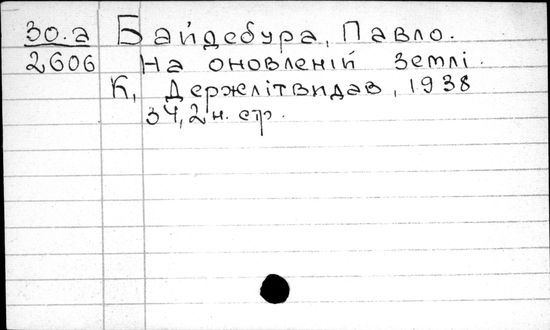 30.а Байдебура, Павло.
2606 На оновленій землі.
К, Держлітвидав, 1938
34, 2 н. стр.